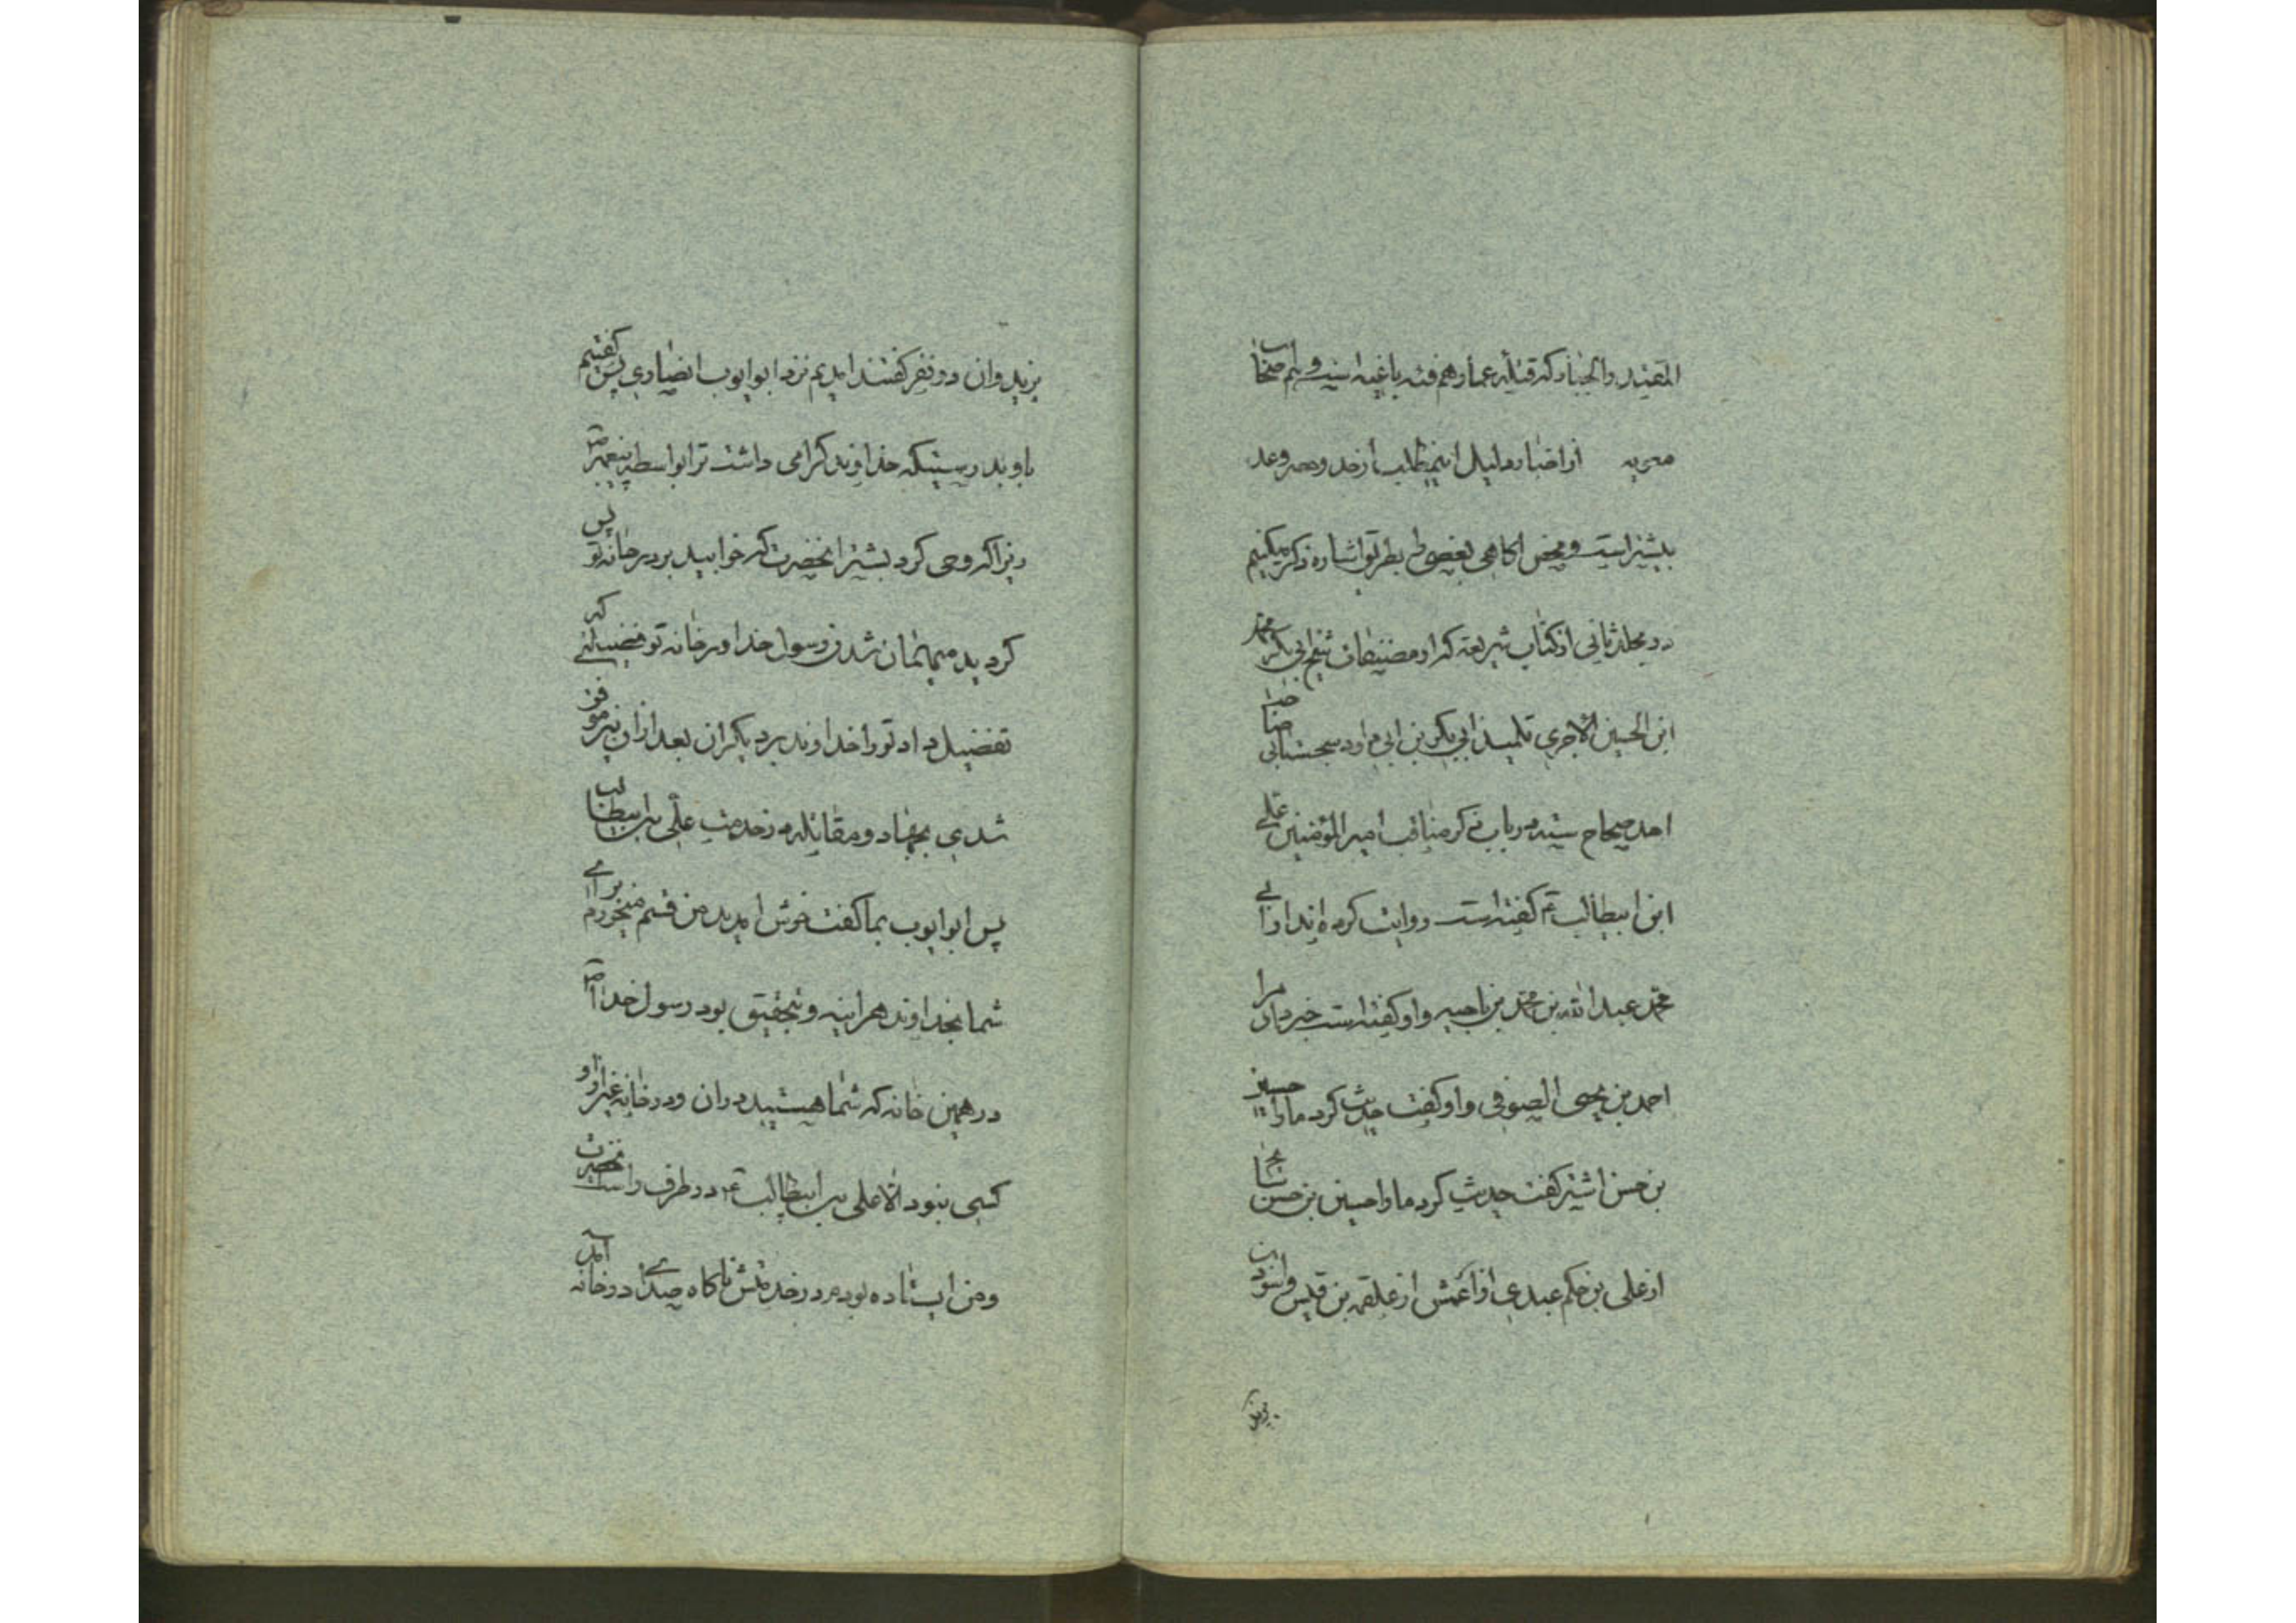 المقتدر والجبار که قتله عمار هم فئه باغیه است و هم صحاب
معویه از اخبار دلیل این مطلب از حد وحصر وعد
بیشتر است و محض اکاهی بعضی را بطریق اشاره ذکر میکنیم
در مجلد ثانی از کتاب شریعه که از مصنفات شیخ ابی بکر محمد
ابن الحسین الاجری تلمیذ ابی بکر بن ابی داود سجستانی صاحب
احد صحاح سته در باب ذکر مناقب امیر المؤمنین علی
ابن ابیطالب ع کفته است روایت کرده اند از ابی
محمد عبد الله بن محمد بن ناجیه واو کفته است خبر داد مرا
احمد بن یحیی الصوفی واو کفت حدیث کرد ما را حسین
بن حسن اشتر کفت حدیث کرد ما را حسین بن حسن
از علی بن حکم عبدی از اعمش از علقمه بن قیس واسود بن
یزید
یزید وان دو نفر کفتند امدیم نزد ابو ایوب انصاری پس کفتیم
باو بدرستیکه خداوند کرامی داشت ترا بواسطه پیغمبر ص
زیرا که وحی کرد بشتر انحضرت که خوابید بر در خانه تو پس
کردید میهمان شدن رسول خدا در خانه تو فضیلتی که
تفضیل داد تو را خداوند بر دیکران بعد از ان نیز موفق
شدی بجهاد ومقاتله در خدمت علی بن ابیطالب
پس ابو ایوب بما کفت خوش امدید من قسم میخورم برای
شما بخداوند هراینه و بتحقیق بود رسول خدا ص
در همین خانه که شما هستید دران ودر خانه غیر از او
کسی نبود الا علی بن ابیطالب ع در طرف راست انحضرت
ومن ایستاده بودم در خدمتش ناکاه صدای در خانه آمد